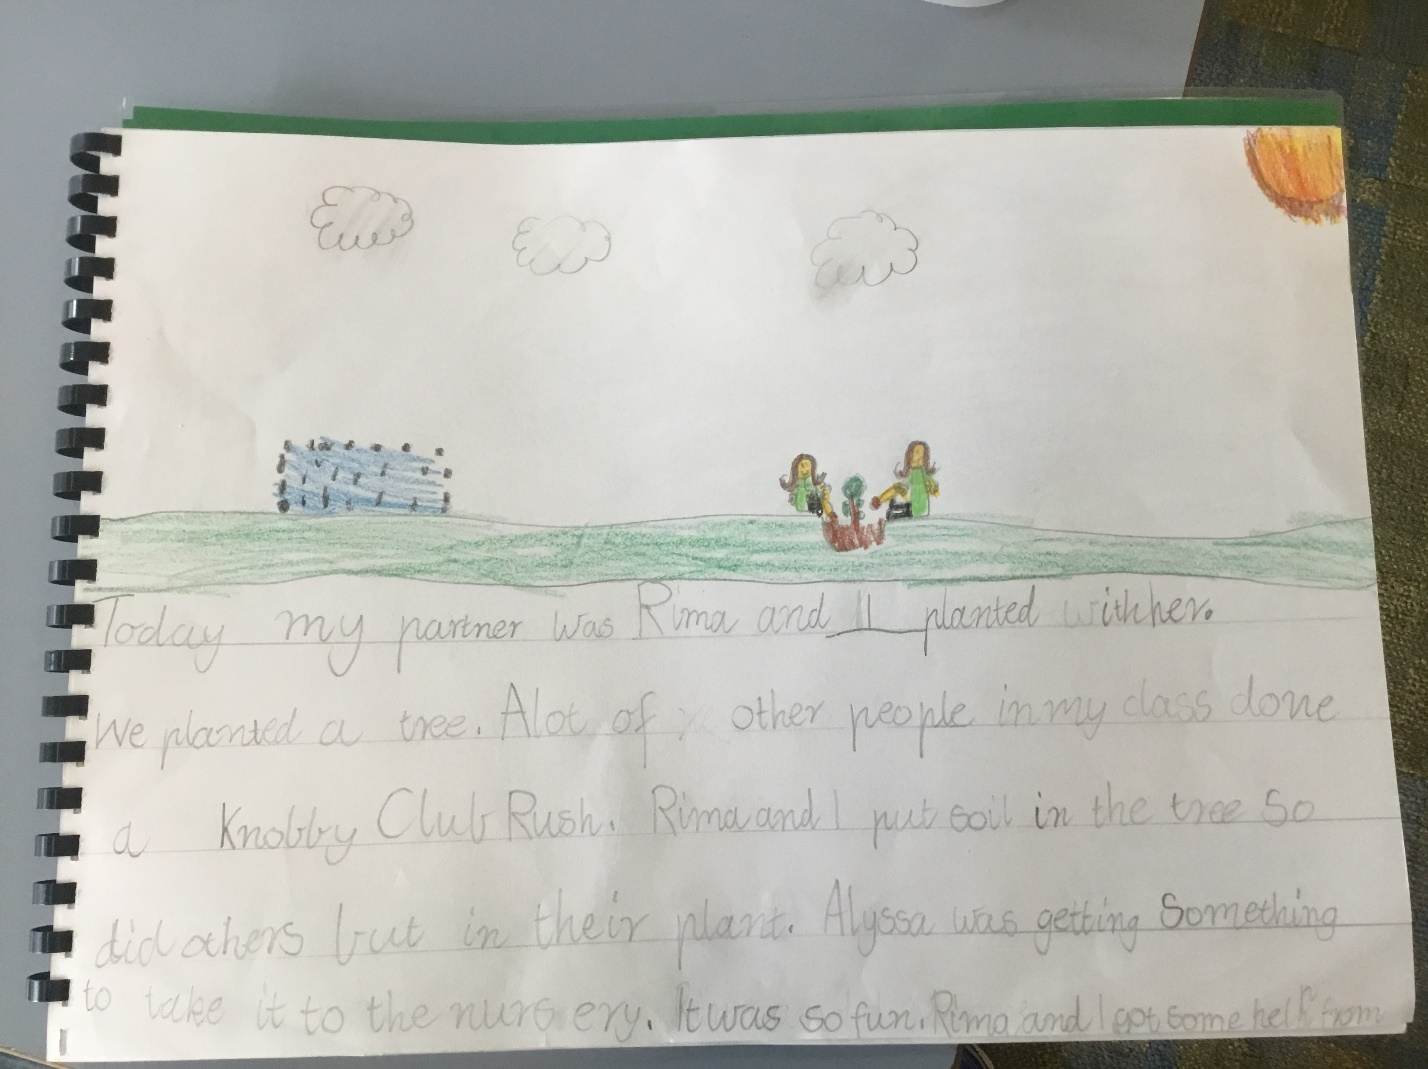 Today my partner was Rima and I planted with her.
We planted a tree. A lot of other people in my class done
a Knobby Club Rush. Rima and I put soil in the tree so
did others but in their plant. Alyssa was getting something
to take it to the nursery. It was so fun. Rima and I got some help from